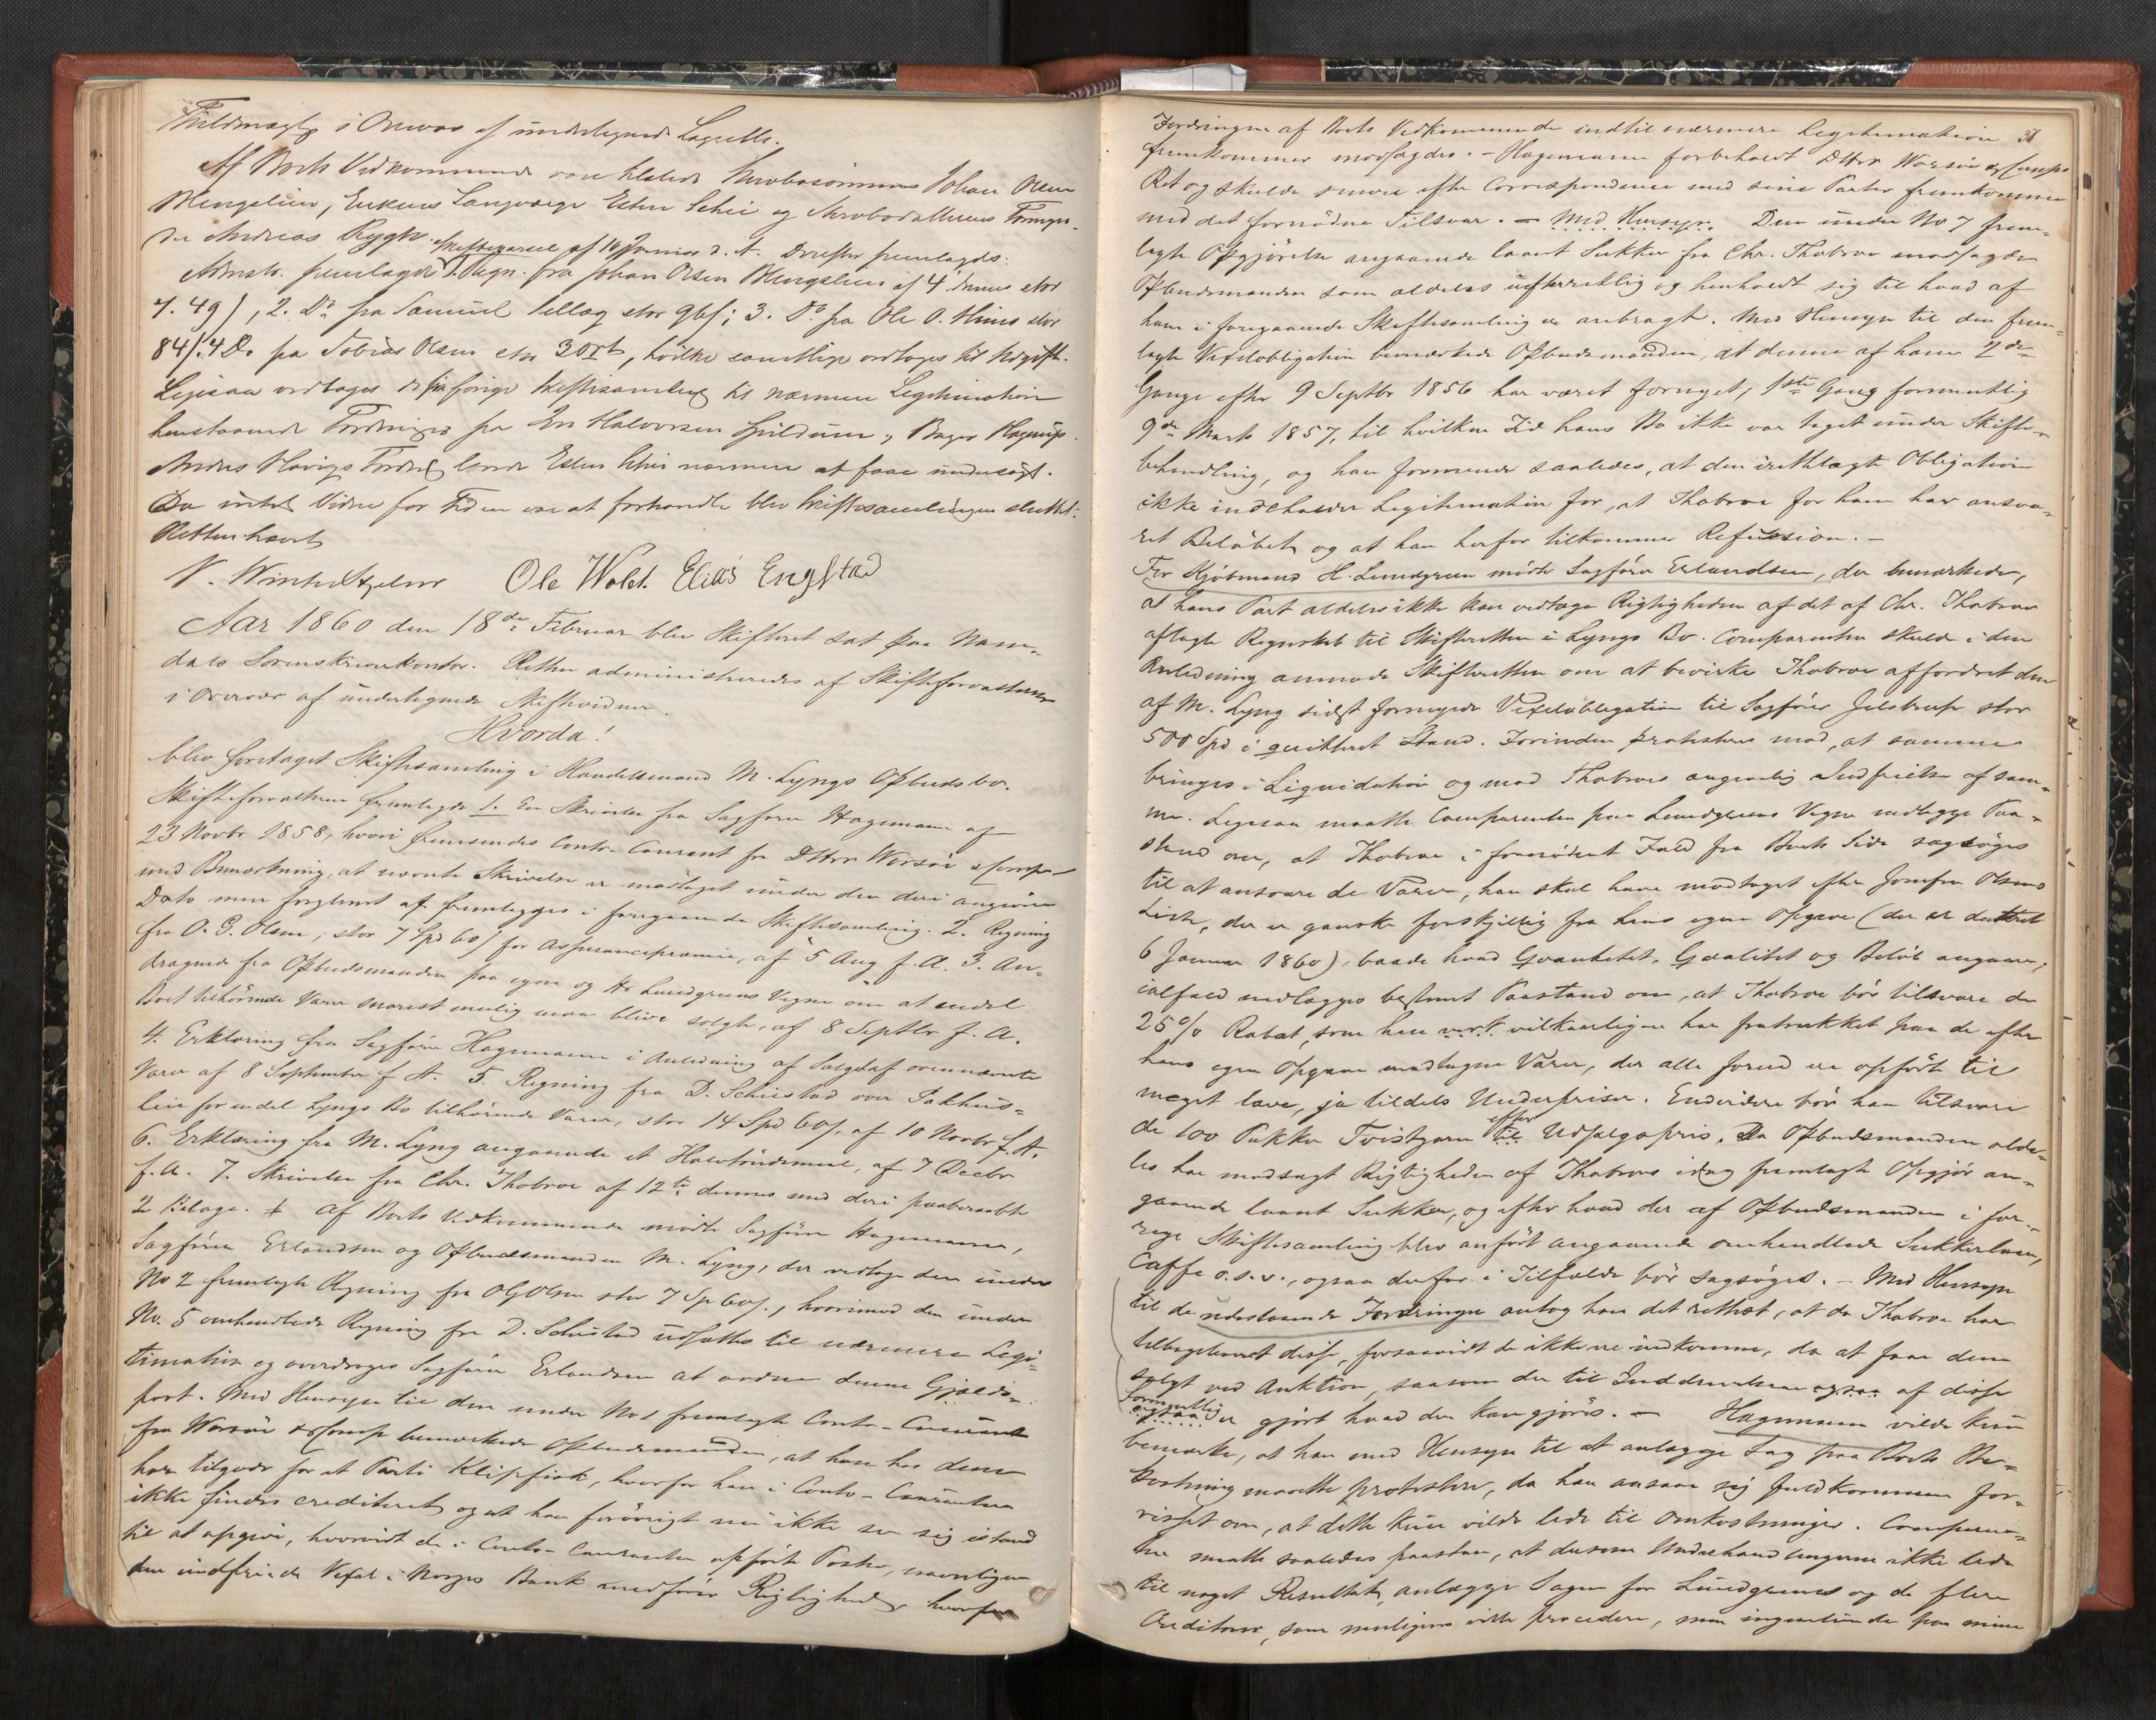 Fuldmægtig i Overvær af undertegnede Lagrette.
Af Boets Vedkommende vare tilstede Johan Olsen
Mengeliien, Enkens Laugværge Esten Schei og Formyn-
der Andreas Rygh. Skiftevarsel af 10 d. A. Derefter fremlagdes:
fremlagde 1. Regn. fra Johan Olsen Mengeliien af 4 dennes stor
4. 49 ƒ, 2. Do fra Samuel Sellæg stor 96ƒ; 3. Do fra Ole O. stor
84ƒ. 4 Do fra Tobias Olsen stor 3 Ort, hvilke samtlige vedtoges til Udgift.
Ligesaa vedtoges de fra forrige Skiftesamling til nærmere Legitimation
henstaaende Fordringer fra Halvorsen Spildum, Bager Hagerup.
Fordring lovede Esten Schei nærmere at faae undersøgt.
Da intet Videre for Tiden var at forhandle blev Skiftesamlingen sluttet.
Retten hævet
Ole Wold. Elias Engstad
Aar 1860 den 18de Februar blev Skifteret sat paa Nam-
dals Sorenskriverkontor. Retten administreredes af Skifteforvalteren
i Overvær af undertegnede Skiftevidner.
Hvorda!
blev foretaget Skiftesamling i Handelsmand M. Lyngs Opbudsbo.
Skifteforvalteren fremlagde 1. En Skrivelse fra Sagfører Hagemann af
23 Novbr 1858, hvori fremsendes Conto-Courant fra DHrr Worsøe & Comp.
med Bemærkning, at nævnte Skrivelse er modtaget under den deri angivne
Dato men forglemt at fremlægges i foregaaende Skiftesamling. 2. Regning
fra O. G. Olsen, stor 7 Spd 60ƒ for Assurancepræmie, af 5 Aug. f. A. 3. An-
dragende fra Opbudsmanden paa egne og Hr Lundgreens Vegne om at endel
Boet tilhørende Varer snarest mulig maa blive solgte, af 8 Septbr f. A.
4. Erklæring fra Sagfører Hagemann i Anledning af Salget af ovennævnte
Varer af 8 September f. A. 5. Regning fra D. Schiestad over Pakhus-
leie for endel Lyngs Bo tilhørende Varer, stor 14 Spd 60ƒ, af 10 Novbr f. A.
6. Erklæring fra M. Lyng angaaende et af 7 Decbr
f. A. 7. Skrivelse fra Chr. Thobroe af 12te dennes med deri paaberaabte
2 Bilage. Af Boets Vedkommende mødte Sagfører Hagemann,
Sagfører Erlandsen og Opbudsmanden M. Lyng, der vedtoge den under
No 2 fremlagte Regning fra O G Olsen stor 7 Sp 60ƒ., hvorimod den under
No. 5 omhandlede Regning fra D. Schiestad udsattes til nærmere Legi-
timation og overdroges Sagfører Erlandsen at ordne denne Gjælds-
post. Med Hensyn til den under No 1 fremlagte Conto-Courant
fra Worsøe & Comp bemærkede Opbudsmanden, at han hos dem
har tilgode for et Parti Klipfisk, hvorfor han i Conto-Couranten
ikke findes crediteret og at han forøvrigt nu ikke ser sig istand
til at opgive, hvorvidt de i Conto-Couranten opførte Poster, navnligen
den indfriede Vexel i Norges Bank medfører Rigtighed, hvorfor
Fordringen af Boets Vedkommende indtil nærmere Legitimation
fremkommer modsagdes. - Hagemann forbeholdt DHrr Worsøe & Comps
Ret og skulde senere efter Correspondence med sine Parter fremkomme
med det fornødne Tilsvar. - Med Hensyn. Den under No 7 frem-
lagte Opgjørelse angaaende laant Sukker fra Chr. Thobroe modsagde
Opbudsmanden som aldeles uefterrettelig og henholdt sig til hvad af
ham i foregaaende Skiftesamling er anbragt. Med Hensyn til den frem-
lagte Vexelobligation bemærkede Opbudsmanden, at denne af ham 2de
Gange efter 9 Septbr 1856 har været fornyet, 1ste Gang formentlig
9de Marts 1857, til hvilken Tid hans Bo ikke var taget under Skifte-
behandling, og han formener saaledes, at den irettelagte Obligation
ikke indeholder Legitimation for, at Thobroe for ham har ansva-
ret Beløbet og at han herfor tilkommer Refusion. -
For Kjøbmand H. Lundgreen mødte Sagfører Erlandsen, der bemærkede,
at hans Part aldeles ikke kan vedtage Rigtigheden af det af Chr. Thobroe
aflagte Regnskab til Skifteretten i Lyngs Bo. Comparenten skulde i den
Anledning anmode Skifteretten om at bevirke Thobroe affordret den
af M. Lyng sidst fornyede Vexelobligation til Sagfører Jelstrup stor
500 Spd i qvitteret Stand. Forinden protesteres mod, at samme
bringes i Liquidation og mod Thobroes angivelig Indfrielse af sam-
me. Ligesaa maatte Comparenten paa Lundgreens Vegne nedlægge Paa-
stand om, at Thobroe i fornødent Fald fra Boets Side sagsøges
til at ansvare de Varer, han skal have modtaget efter Jomfru Olsens
Liste, der er ganske forskjellig fra hans egen Opgave (der er dateret
6 Januar 1860), baade hvad Qvantitet, Qvalitet og Beløb angaaer,
ialfald nedlægges bestemt Paastand om, at Thobroe bør tilsvare de
25% Rabat, som han vilkaarligen har fratrukket paa de efter
hans egen Opgave modtagne Varer, der alle forud ere opførte til
meget lave, ja tildels Underpriser. Endvidere bør han tilsvare
de 100 Pakker Tvistgarn efter til Udsalgspris. Da Opbudsmanden alde-
les har modsagt Rigtigheden af Thobroes idag fremlagte Opgjør an-
gaaende laant Sukker, og efter hvad der af Opbudsmanden i for-
rige Skiftesamling blev anført angaaende omhandlede Sukkerlaan,
Caffe o. s. v., ogsaa derfor i Tilfælde bør sagsøges. - Med Hensyn
til de udestaaende Fordringer antog han det rettest, at da Thobroe har
tilbageleveret disse, forsaavidt de ikke ere indkomne, da at faae dem
solgt ved Auktion, saasom der til Inddrivelsen ogsaa af disse
formentlig ogsaa er gjort hvad der kan gjøres. - Hagemann vilde kun
bemærke, at han med Hensyn til at anlægge Sag paa Boets Be-
kostning maatte protestere, da han ansaae sig fuldkommen for-
visset om, at dette kun vilde lede til Omkostninger. Comparen-
ten maatte saaledes paastaa, at dersom Underhandlingerne ikke lede
til noget Resultat, anlægge Sagen for Lundgreens og de flere
Creditorer, som muligens ville procedere, men ingenlunde paa mine